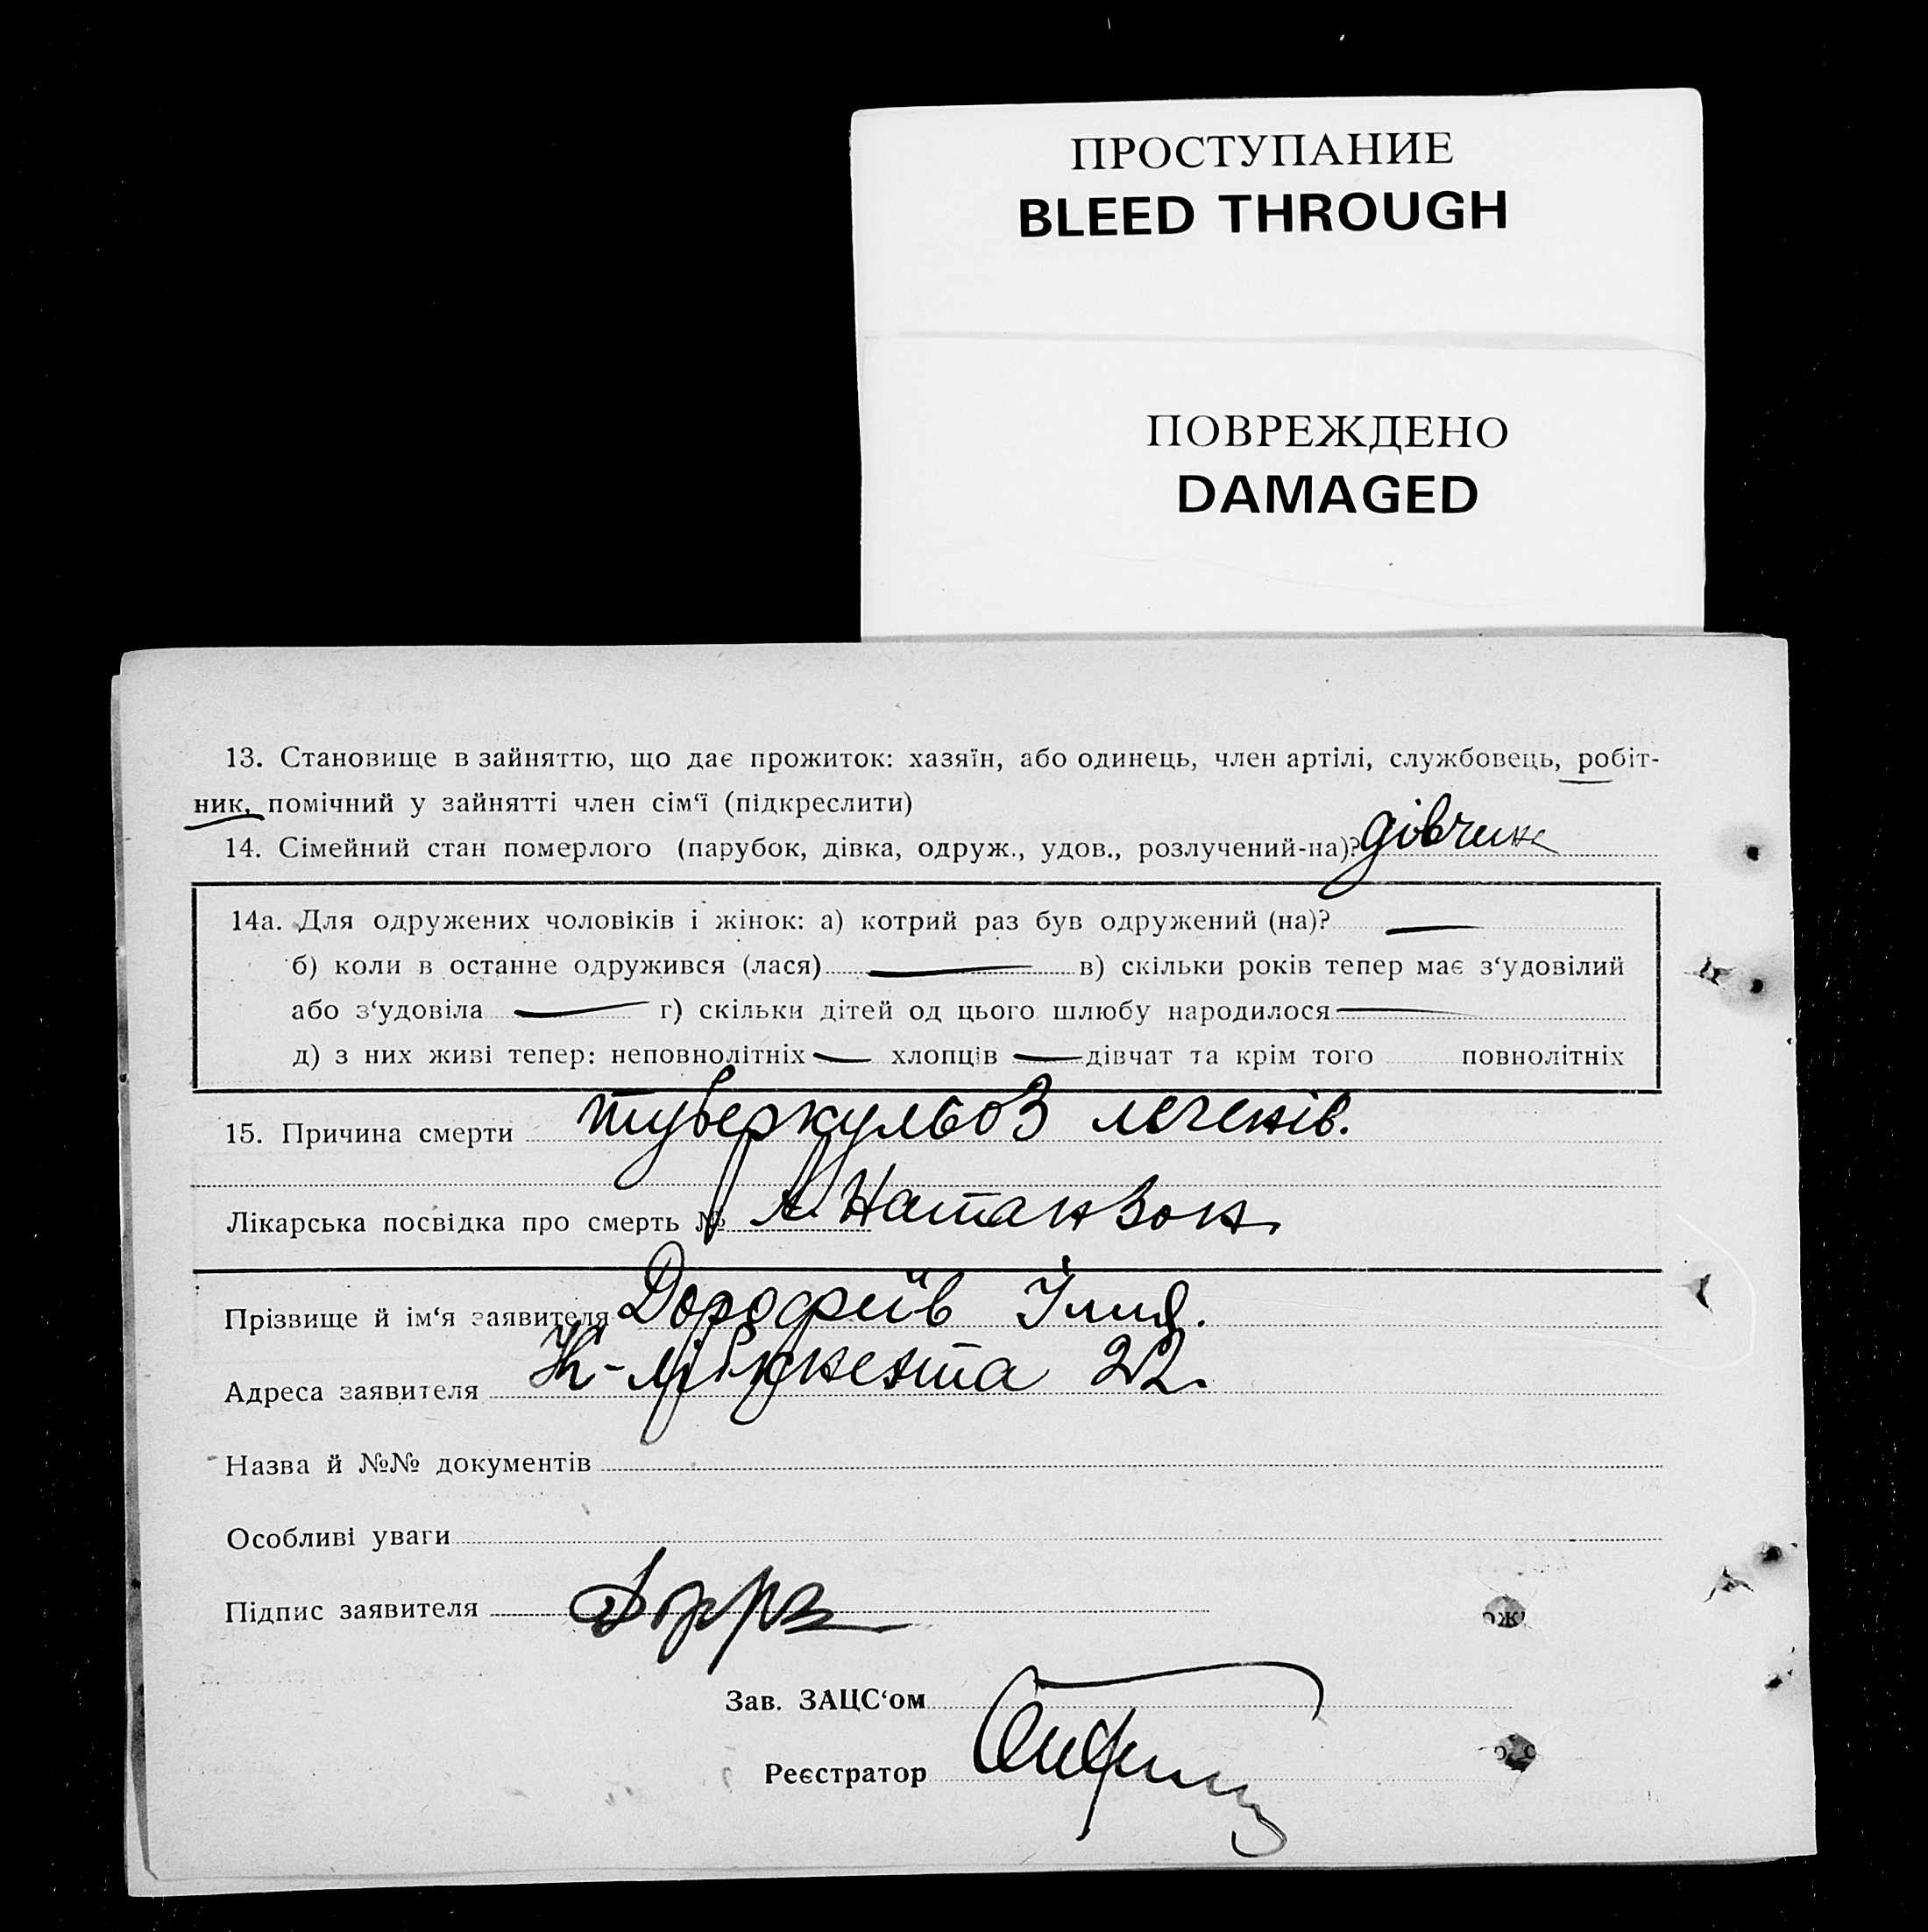 ПРОСТУПАНИЕ
BLEED THROUGH
ПОВРЕЖДЕНО
DAMAGED
13. Становище в зайняттю, що дає прожиток: хазяїн, або одинець, член артілі, службовець, робіт-
ник, помічний у зайнятті член сім‘ї (підкреслити)
14. Сімейний стан померлого (парубок, дівка, одруж., удов., розлучений-на)? дівчина
14а. Для одружених чоловіків і жінок: а) котрий раз був одружений (на)? —
б) коли в останне одружився (лася) — в) скільки років тепер має з‘удовілий
або з‘удовіла — г) скільки дітей од цього шлюбу народилося —
д) з них живі тепер: неповнолітніх — хлопців — дівчат та крім того повнолітніх
15. Причина смерти туберкульоз легенів.
Лікарська посвідка про смерть № Натанзон
Прізвище й ім‘я заявителя Дорофеїв Ілля.
Адреса заявителя 22.
Назва й №№ документів
Особливі уваги
Підпис заявителя
Зав. ЗАЦС‘ом
Реєстратор